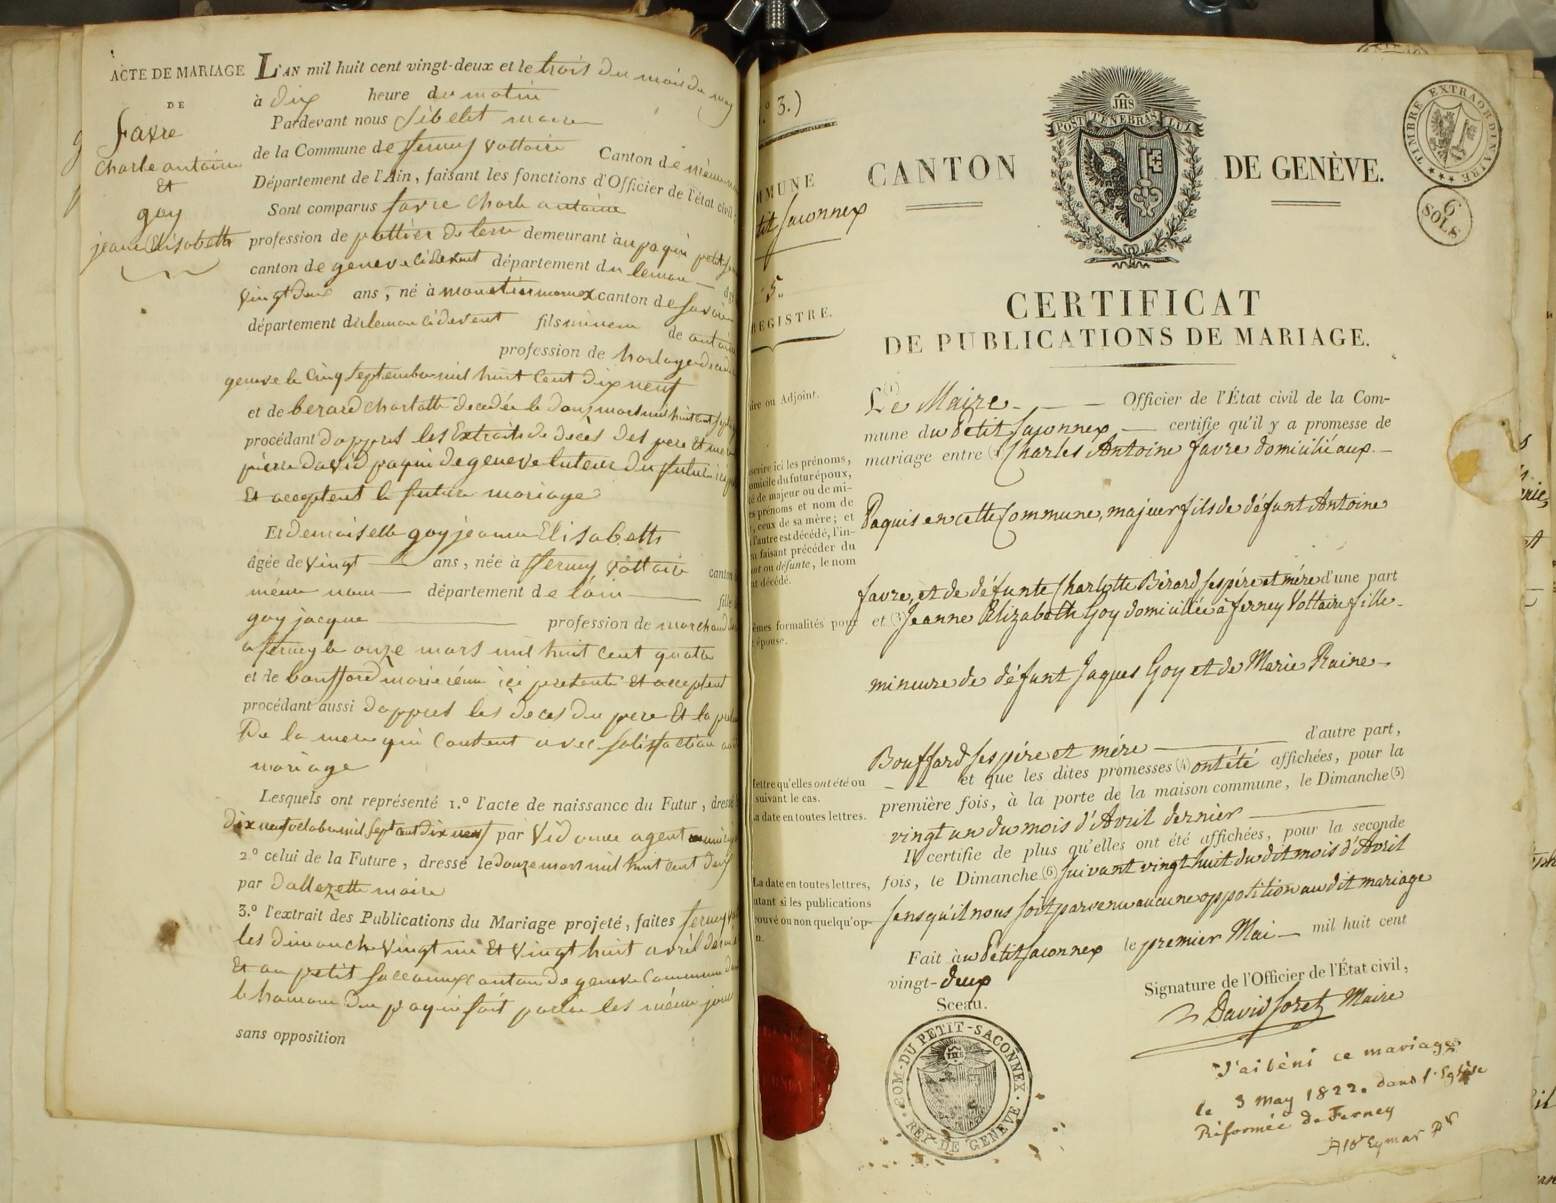 ACTE DE MARIAGE
DE
favre
charle antoine
et
goy
jeanne Elisabette
L'AN mil huit cent vingt-deux et le trois du mois de may
à dix heure du matin
Pardevant nous sibelet maire
de la Commune de ferney voltaire Canton de même
Département de l'Ain, faisant les fonctions d'Officier de l'état civil
Sont comparus favre Charle antoine
profession de pottier de terre demeurant au paqui petit
canton de geneve cidevant département du leman
vingt deux ans, né à monetier mornex canton de savoie
département du leman cidevent fils mineur de antoine
profession de horloger
geneve le cinq septembre mil huit cent dix neuf
et de berard charlotte decedée le douze mars mil huit cent
procédant dappres les Extraits de decès des pere et mere
pierre david paqui de geneve tuteur du futur
Et acceptent le futur mariage
Et demoiselle goy jeanne Elisabette
âgée de vingt ans, née à ferney voltaire canton
même nom département de lain fille
goy jacque profession de marchand
a ferney le onze mars mil huit cent quatre
et de bouffard marie reine ici presente et acceptent
procédant aussi dappres les deces du pere Et la
De la mere qui consent avec satisfaction au
mariage
Lesquels ont représenté 1.º l'acte de naissance du Futur, dressé
dix neuf octobre mil sept cent dix neuf par Vidonne agent
2.º celui de la Future, dressé le douze mars mil huit cent deux
par Dallezette maire
3.º l'extrait des Publications du Mariage projeté, faites ferney
les dimanche vingt un Et vingt huit avril
Et au petit sacconnex canton de geneve Commune
le hameau du paqui fait partie les même jour
sans opposition
º 3.)
MMUNE
tit saconnex
5.
REGISTRE.
CANTON DE GENÈVE.
JHS
POST TENEBRAS LUX
TIMBRE EXTRAORDINAIRE
6
SOLS
CERTIFICAT
DE PUBLICATIONS DE MARIAGE.
ire ou Adjoint.
(1)
Le Maire Officier de l'État civil de la Com-
mune du Petit Saconnex certifie qu'il y a promesse de
mariage entre Charles Antoine favre domicilié aux
Paquis en cette Commune, majeur fils de défunt Antoine
favre, et de défunte Charlotte Bérard ses père et mère d'une part
et (3) Jeanne Elizabeth Goy domiciliée à ferney Voltaire fille
mineure de défunt Jaques Goy et de Marie Raine
Bouffard ses père et mère d'autre part,
et que les dites promesses (4) ont été affichées, pour la
première fois, à la porte de la maison commune, le Dimanche (5)
vingt un du mois d'Avril dernier
Il certifie de plus qu'elles ont été affichées, pour la seconde
fois, le Dimanche (6) suivant vingt huit du dit mois d'Avril
sans qu'il nous soit parvenu aucune opposition au dit mariage
Fait au Petit Saconnex le premier Mai mil huit cent
vingt-deux
Signature de l'Officier de l'État civil,
David Soret Maire
Sceau.
COM. DU PETIT-SACONNEX
REP. DE GENÈVE
scrire ici les prénoms,
omicile du futur époux,
té de majeur ou de mi-
es prénoms et nom de
, ceux de sa mère; et
l'autre est décédé, l'in-
n faisant précéder du
nt ou défunte, le nom
nt décédé.
êmes formalités pour
épouse.
lettre qu'elles ont été ou
suivant le cas.
a date en toutes lettres.
La date en toutes lettres,
utant si les publications
rouvé ou non quelqu'op-
n.
J'ai béni ce mariage
le 3 may 1822. dans l'Eglise
Réformée de Ferney
Eymar Pr